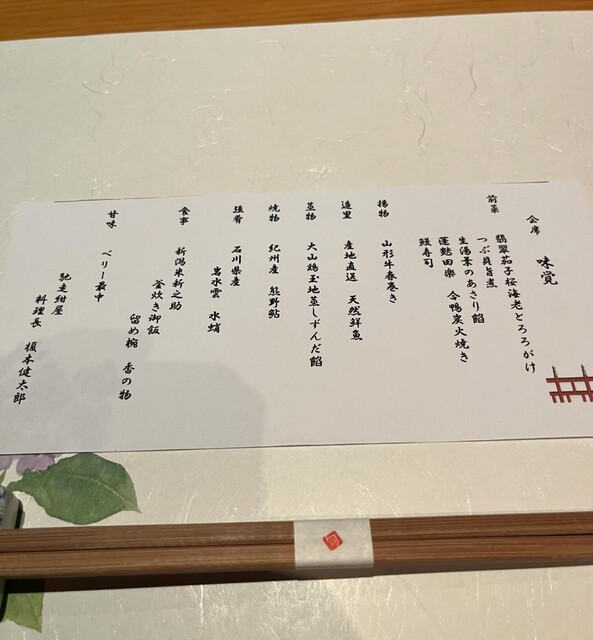 会席　味覚
前菜
翡翠茄子桜海老とろろがけ
つぶ貝旨煮
生湯葉のあさり餡
蓬麩田楽　合鴨炭火焼き
鰻寿司
揚物　山形牛春巻き
造里　産地直送　天然鮮魚
蒸物　大山鶏玉地蒸しずんだ餡
焼物　紀州産　熊野鮎
強肴　石川県産
岩水雲　水蛸
食事　新潟米新之助
釜炊き御飯
留め椀　香の物
甘味　ベリー最中
馳走紺屋
料理長　榎本健太郎
旬